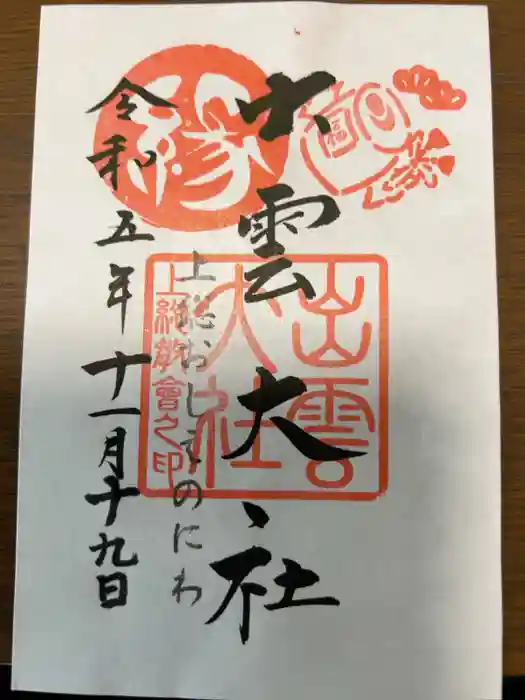 福
縁
出雲大社
出雲
大社
上総教會之印
上総おしまのにわ
令和五年十一月十九日